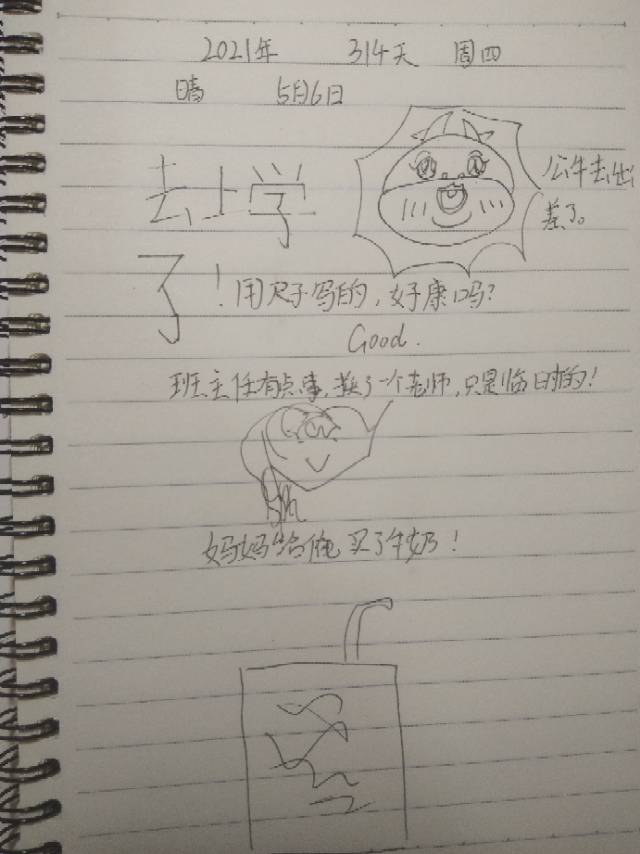 2021年 314天 周四
晴 5月6日
公牛去出
差了。
去上学
了！用尺子写的，好康吗？
Good.
班主任有点事，换了一个老师，只是临时的！
妈妈给俺买了牛奶！